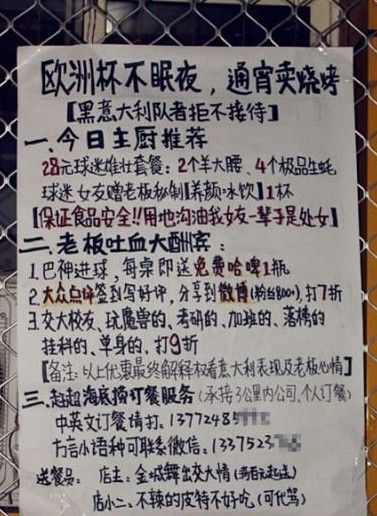 欧洲杯不眠夜，通宵卖烧烤
【黑意大利队者拒不接待】
一、今日主厨推荐
28元球迷雄壮套餐：2个羊大腰、4个极品生蚝
球迷女友赠老板秘制【养颜冰饮】1杯
【保证食品安全!!用地沟油我女友一辈子是处女】
二、老板吐血大酬宾：
1.巴神进球，每桌即送免费哈啤1瓶
2.大众点评签到写好评，分享到微博(粉丝800+)，打7折
3.交大校友、玩魔兽的、考研的、加班的、落榜的
挂科的、单身的，打9折
【备注：以上优惠最终解释权看意大利表现及老板心情】
三、赵赵海底捞订餐服务（承接3公里内公司、个人订餐）
中英文订餐请打：13772485
方言小语种可联系微信：1337523
送餐员： 店主：金城舞出交大情(满百元起送)
店小二：不辣的皮特不好吃（可代驾）